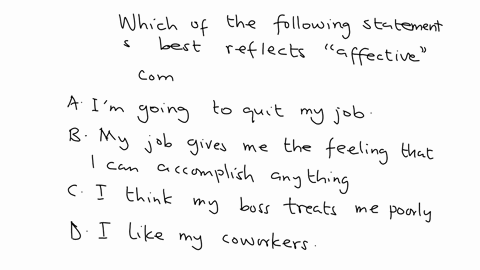 Which of the following statement
s best reflects "affective"
com
A. I'm going to quit my job.
B. My job gives me the feeling that
I can accomplish anything
C. I think my boss treats me poorly
D. I like my coworkers.